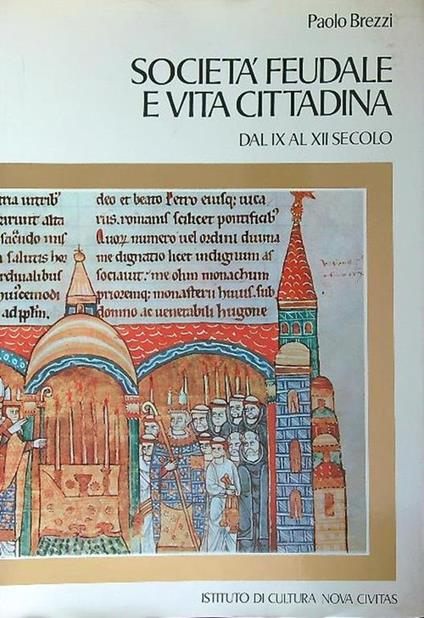 Paolo Brezzi
SOCIETA' FEUDALE
E VITA CITTADINA
DAL IX AL XII SECOLO
alta
a salutis hor
rdinalibus
deo et beato Petro eiusq; uica
riis. romanis scilicet pontificib'
numero uel ordini diuina
me dignatio licet indignum as
sociauit: me olim monachum
prioremq; monasterii huius. sub
domno ac uenerabili hugone
ISTITUTO DI CULTURA NOVA CIVITAS